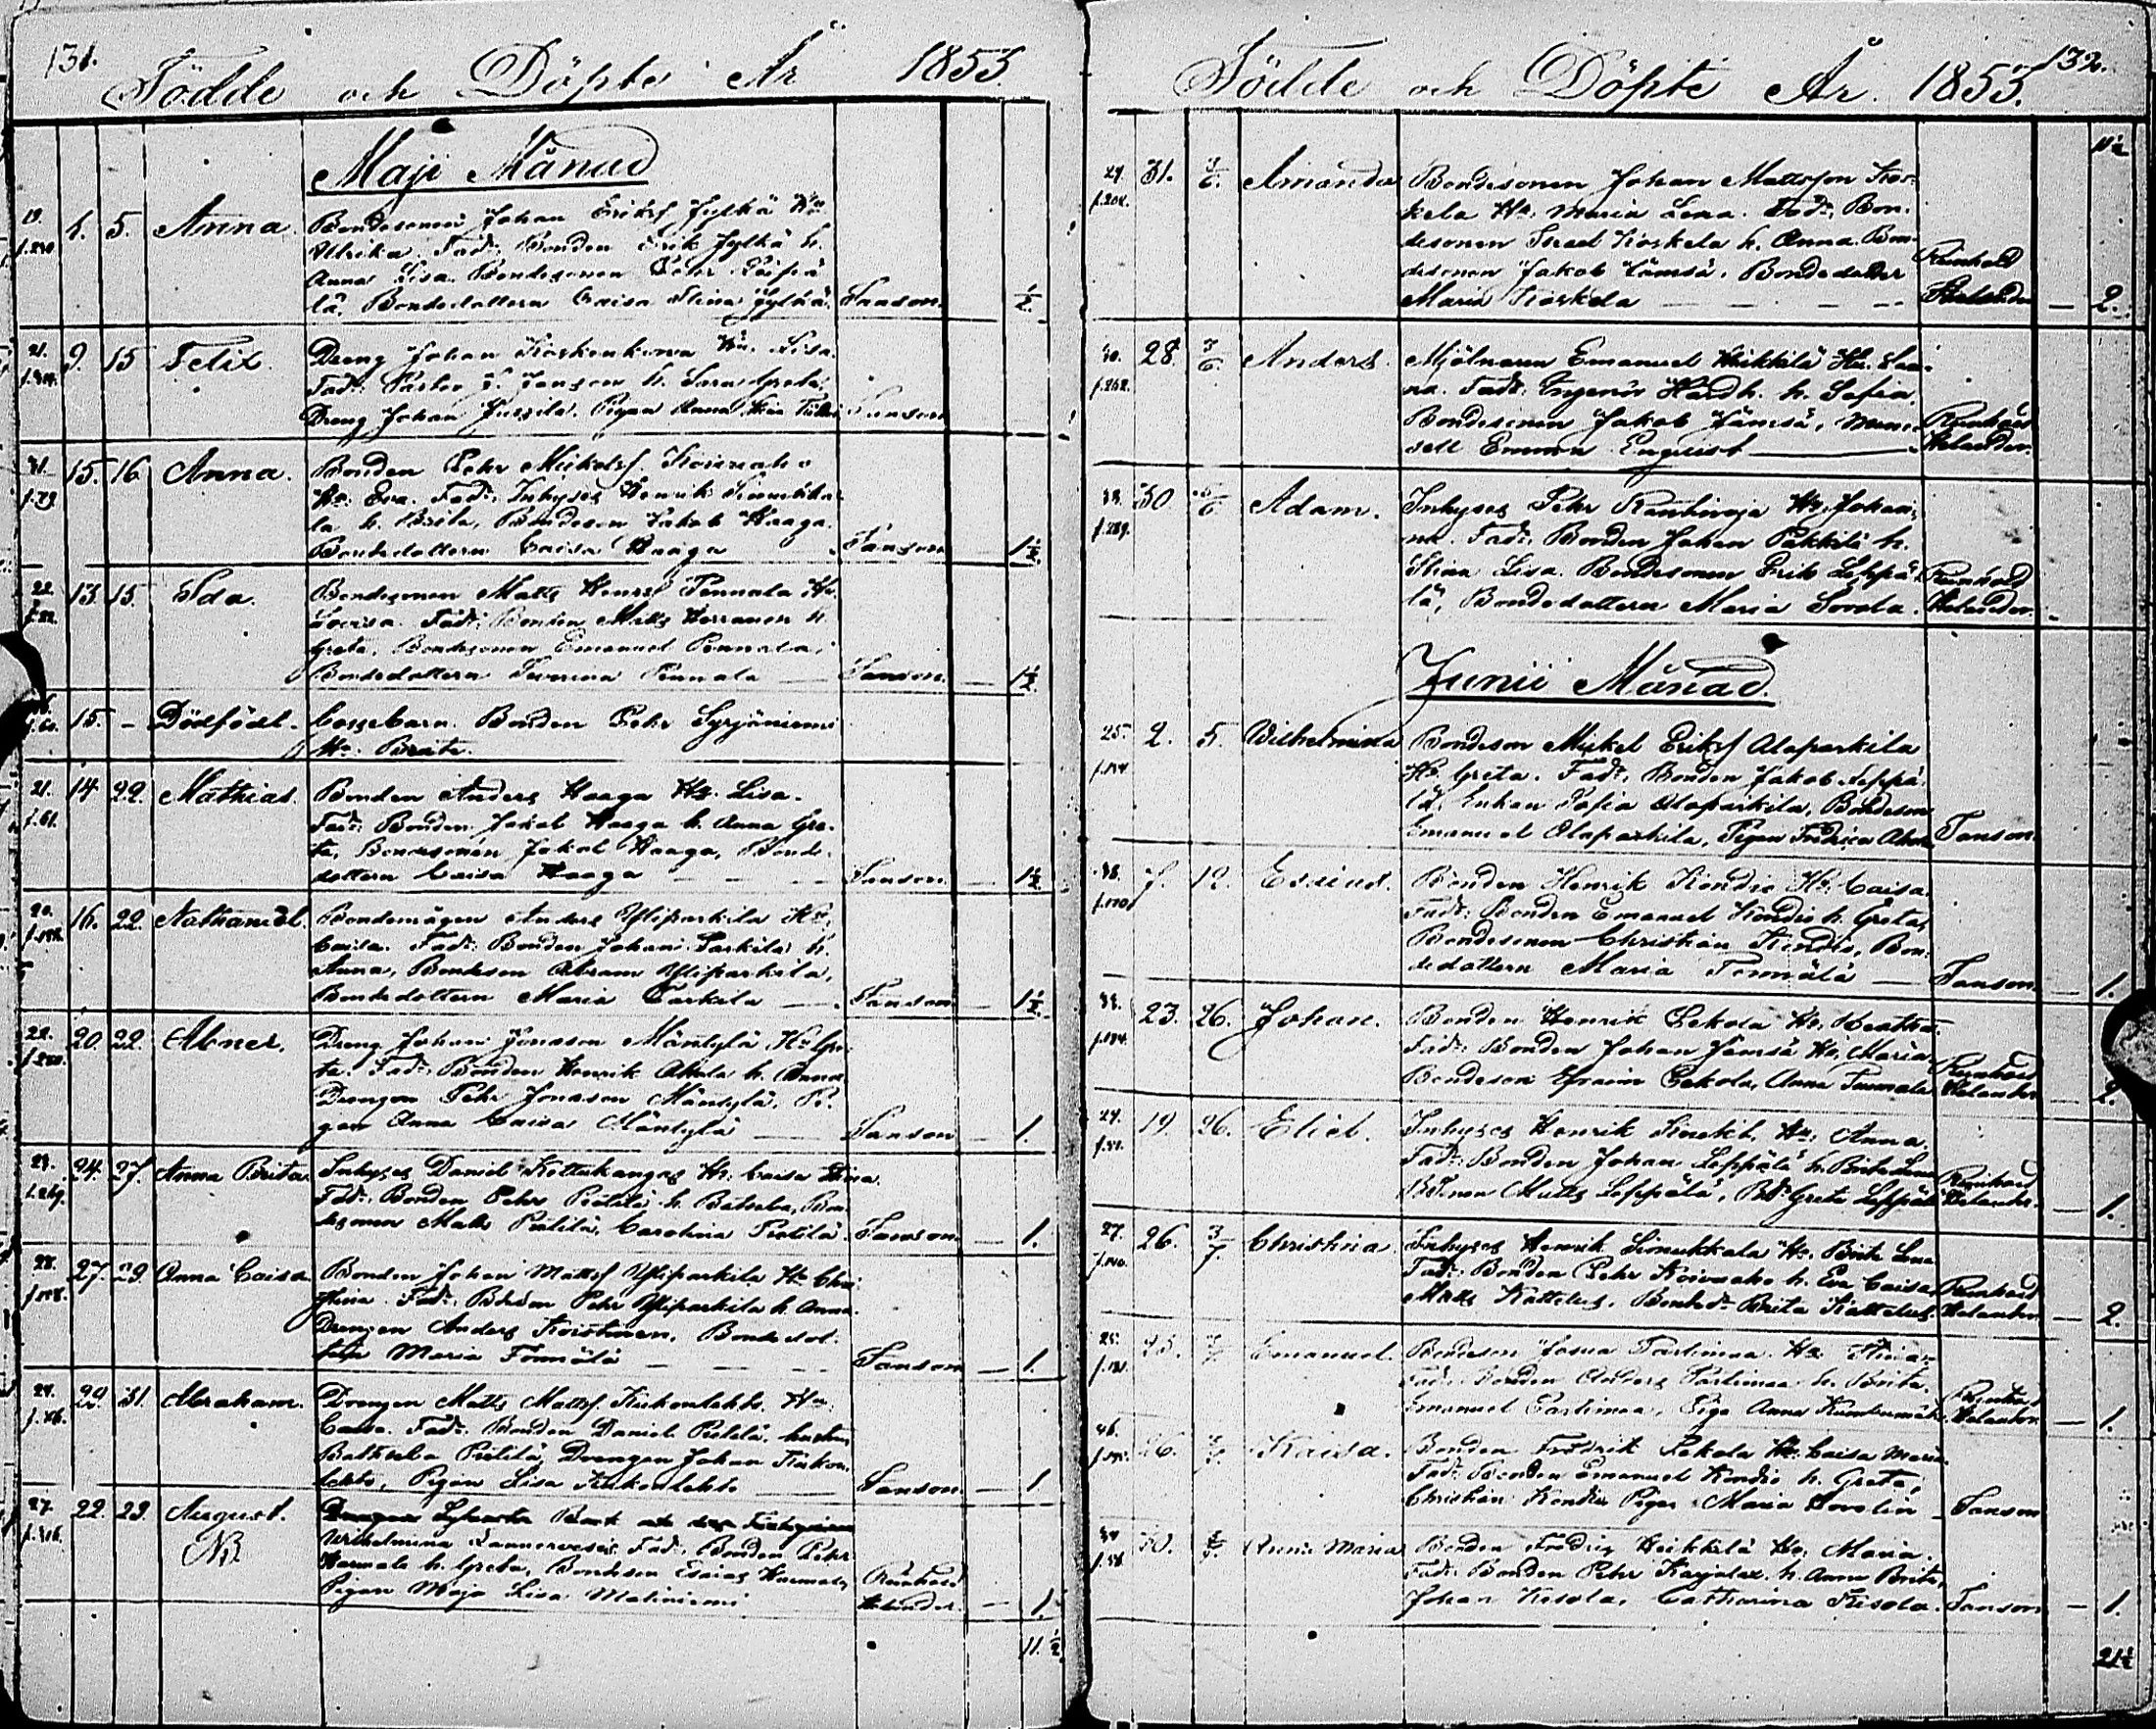 131.
Födde och Döpte År 1853
Maji Månad
19. 1. 5. Anna. Bondesonen Johan Eriks. Jylhä Hu.
f.240 Ulrika. Fadd: Bonden Erik Jylhä h.
Anna Lisa. Bondesonen Pehr
lä, Bondedottern Caisa Stina Jylhä. Janson ½
21. 9. 15 Felix. Dreng Johan Koskenkorva Hu. Lisa.
Fadd: J. Janson h. Sara Greta,
Dreng Johan Jussila. Pigan Anna Janson
31. 15. 16 Anna. Bonden Pehr Mickelss. Koivuaho
f.79. Hu. Eva. Fadd: Inhyses Henrik Sinukka-
la h. Brita, Bondeson Jakob Haaga.
Bondedottern Caisa Haaga Janson 1½.
22. 13. 15. Ida. Bondesonen Matts Henrss. Pennala Hu.
f.22. Lovisa. Fadd: Bonden Matts Herranen h.
Greta, Bondesonen Emanuel Pennala,
Bondedottern Pennala Janson. 1½.
f.60. 15. - Dödfödt. Gossebarn. Bonden Pehr Syrjäniemi
Hu. Beata.
21. 14 22. Mathias. Bonden Anders Haaga Hu. Lisa.
f.61. Fadd: Bonden Jakob Haaga h. Anna Gre-
ta, Bondesonen Jakob Haaga, Bonde-
dottern Caisa Haaga Janson. 1½.
20. 16. 22. Nathanael. Bondemågen Anders Yliparkila Hu.
Caisa. Fadd: Bonden Johan Parkila h.
Anna, Bondeson Abram Yliparkila,
Bondedottern Maria Parkila Janson 1½.
22. 20. 22. Abner. Dreng Johan Jonsson Mäntylä Hu. Gre-
f.250. ta. Fadd: Bonden Henrik Alkula h. Anna
Drengen Pehr Jonsson Mäntylä, Pi-
gan Anna Caisa Mäntylä Janson 1.
24. 27. Anna Brita. Inhyses Daniel Kottukangas Hu. Caisa Stina.
f.269. Fadd: Bonden Pehr Pietilä h. Batseba, Bon-
desonen Matts Pietilä, Carolina Pietilä. Janson. 1.
28. 27. 29. Anna Caisa Bonden Johan Mattss. Yliparkila Hu. Chri-
f.108. stina. Fadd: Bonden Pehr Yliparkila h. Anna.
Drengen Anders Koistinen, Bondedot-
tern Maria Tönnälä Janson 1.
24. 29. 31. Abraham. Drengen Matts Mattss. Kiikonlehto. Hu.
Caisa. Fadd: Bonden Daniel Pietilä, hustru
Bathseba Pietilä, Drengen Johan Kiikon-
lehto, Pigan Lisa Kiikonlehto Janson 1
27. 22. 23. August.
f.316. NB. Wilhelmina Fadd: Bonden Pehr
h. Greta, Bondeson Esaias Reinhold
Pigan Maja Lisa Matiniemi Helander. 1.
11.½
132.
Födde och Döpte År 1853.
11½
29. 31. 3/6. Amanda Bondesonen Johan Mattsson Kos-
f.204. kela Hu. Maria Lena. Fadd: Bon-
desonen Israel Koskela h. Anna. Bon-
desonen Jakob Jämsä, Bondedotter Reinhold
Maria Koskela Helander 2.
30. 28. 3/6. Anders. Mjölnaren Emanuel Heikkilä Hu. Lee-
f.262. na. Fadd: Ingeniör Hårdh h. Sofia.
Bondesonen Jakob Jämsä, mam- Reinhold
sell Emma Enqvist Helander.
33. 30 5/6 Adam. Inhyses Pehr Rautivoja Hu. Johan-
f.289. na. Fadd: Bonden Johan Pakkilä h.
Stina Lisa. Bondesonen Erik Leppä- Reinhold
lä, Bondedottern Maria Sorola. Helander.
Junii Månad.
25. 2. 5. Wilhelmina Bondeson Mickel Erikss. Alaparkila
f.194 Hu. Greta. Fadd: Bonden Jakob Leppä-
lä, Enkan Sofia Alaparkila, Bondeson
Emanuel Alaparkila, Pigan Fredrica Janson
38. 7. 12. Esaias. Bonden Henrik Kondio Hu. Caisa.
f.170. Fadd: Bonden Emanuel Kondio h. Greta,
Bondesonen Christian Kondio, Bon-
dedottern Maria Tönnälä Janson 1.
33. 23. 26. Johan. Bonden Henrik Pekola Hu. Beatha.
f.194. Fadd: Bonden Johan Jämsä Hu. Maria, Reinhold
Bondeson Efraim Pekola, Anna Helander 2.
24. 19. 26. Eliel. Inhyses Henrik Hu. Anna.
f.57. Fadd: Bonden Johan Leppälä h. Brita Lena Reinhold
Matts Leppälä, Bd. Greta Leppälä Helander. 1.
27. 26. 3/7 Christina. Inhyses Henrik Sinukkala Hu. Brita Lena
f.140. Fadd: Bonden Pehr Koivuaho h. Eva Caisa, Reinhold
Matts Kattelus, Bonded. Brita Kattelus. Helander 2.
25. 25. Emanuel. Bondeson Josua Partimaa Hu. Stina.
f.121. Fadd: Bonden Anders Partimaa h. Brita, Reinhold
Emanuel Partimaa, Piga Anna Helander. 1.
26. Kaisa. Bonden Fredrik Pekola Hu. Caisa Maria.
Fadd: Bonden Emanuel Kondio h. Greta,
Christian Kondio Pigan Maria Janson
30. Anna Maria Bonden Fredrik Heikkilä Hu. Maria.
f.56. Fadd: Bonden Pehr Karjalax h. Anna Brita,
Johan Kesola, Catharina Kesola. Janson 1.
21½